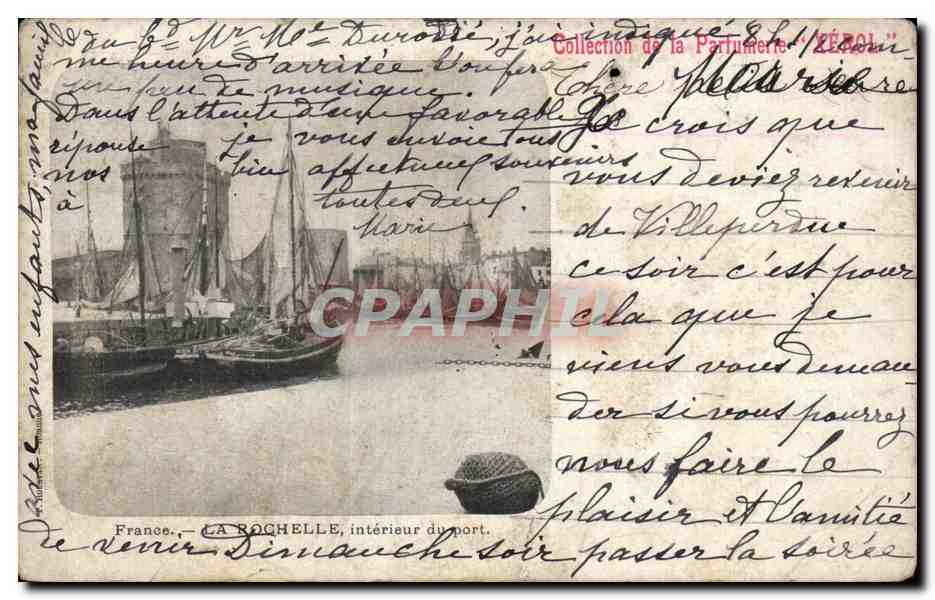 Collection de la Parfumerie "XÉROL"
Chère Marie
Je crois que
vous deviez revenir
de Villeperdue
ce soir c'est pour
cela que je
viens vous deman
der si vous pourrez
nous faire le
plaisir et l'amitié
de venir Dimanche soir passer la soirée
avec mes enfants, ma famille
du bd Mr Me j'ai indiqué 8 h 1/2 com
me heure d'arrivée l'on fera
un peu de musique.
Dans l'attente d'une favorable
réponse je vous envoie tous
nos bien affectueux souvenirs
à toutes deux.
Marie
France. — LA ROCHELLE, intérieur du port.
CPAPHIL